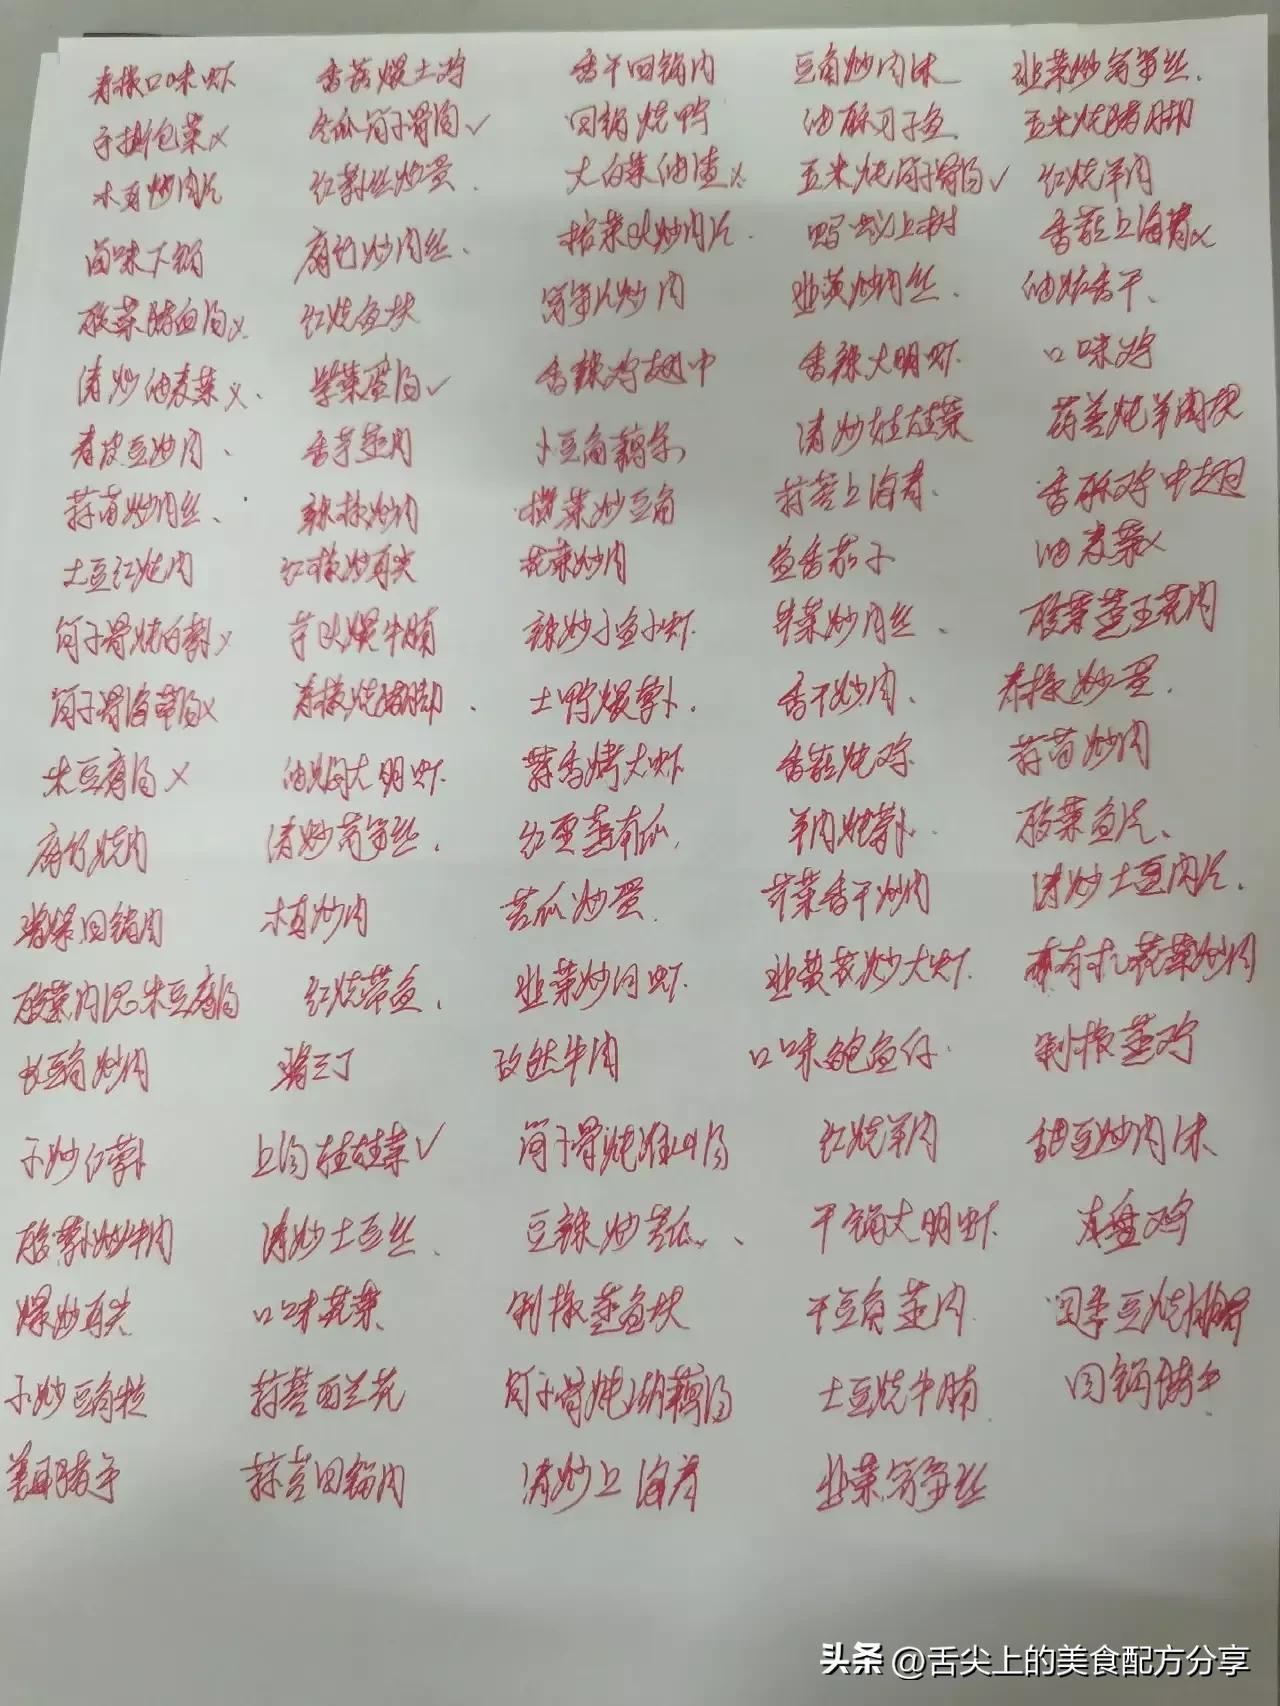 青椒口味虾 香菇煨土鸡 香干回锅肉 豆角炒肉沫 韭菜炒莴笋丝.
手撕包菜x 冬瓜筒子骨汤✓ 回锅烧鸭 油酥刁子鱼 玉米烧猪脚
木耳炒肉片 红萝丝炒蛋. 大白菜油渣x. 玉米炖筒子骨汤✓ 红烧羊肉
卤味下锅 腐竹炒肉丝、 榨菜头炒肉片. 蚂蚁上树 香菇上海青x
酸菜猪血汤x. 红烧鱼块 莴笋片炒肉 韭黄炒肉丝. 油炸香干、
清炒油麦菜x、 紫菜蛋汤✓ 香辣鸡翅中 香辣大明虾. 口味鸡
青皮豆炒肉、 香芋蒸肉 卜豆角 清炒娃娃菜 羊肉
蒜苗炒肉丝、 辣椒炒肉 榄菜炒豆角 蒜蓉上海青. 香酥鸡中翅
土豆红烧肉 红椒炒耳尖 花菜炒肉 鱼香茄子 油麦菜x
筒子骨炖白萝x 芋头煨牛腩 辣炒小鱼小虾. 芹菜炒肉丝、 酸菜蒸五花肉
筒子骨海带汤x 青椒烧猪脚. 土鸭煨萝卜. 香干炒肉. 青椒炒蛋.
米豆腐汤x 油焖大明虾. 蒜香烤大虾 香菇炖鸡. 蒜苗炒肉
腐竹烧肉 清炒莴笋丝. 红枣蒸南瓜. 羊肉炖萝卜. 酸菜鱼片、
酱爆回锅肉 木耳炒肉 苦瓜炒蛋. 芹菜香干炒肉 清炒土豆肉片.
酸菜肉泥米豆腐汤 红烧带鱼. 韭菜炒河虾. 韭黄花炒大虾. 有机花菜炒肉
长豆角炒肉 酱三丁 孜然牛肉 口味鲍鱼仔. 剁椒蒸鸡
干炒白萝卜 上汤娃娃菜✓ 筒子骨炖淮山汤 红烧羊肉 甜豆炒肉沫
酸萝卜炒牛肉 清炒土豆丝、 豆辣炒苦瓜、 干锅大明虾. 大盘鸡
爆炒耳尖 口味花菜 剁椒蒸鱼块 干豆角蒸肉. 四季豆烧排骨
干炒豆角粒 蒜蓉西兰花 筒子骨炖湖藕汤 土豆烧牛腩. 回锅猪手
猪手 蒜苔回锅肉 清炒上海青 韭菜莴笋丝
头条 @舌尖上的美食配方分享